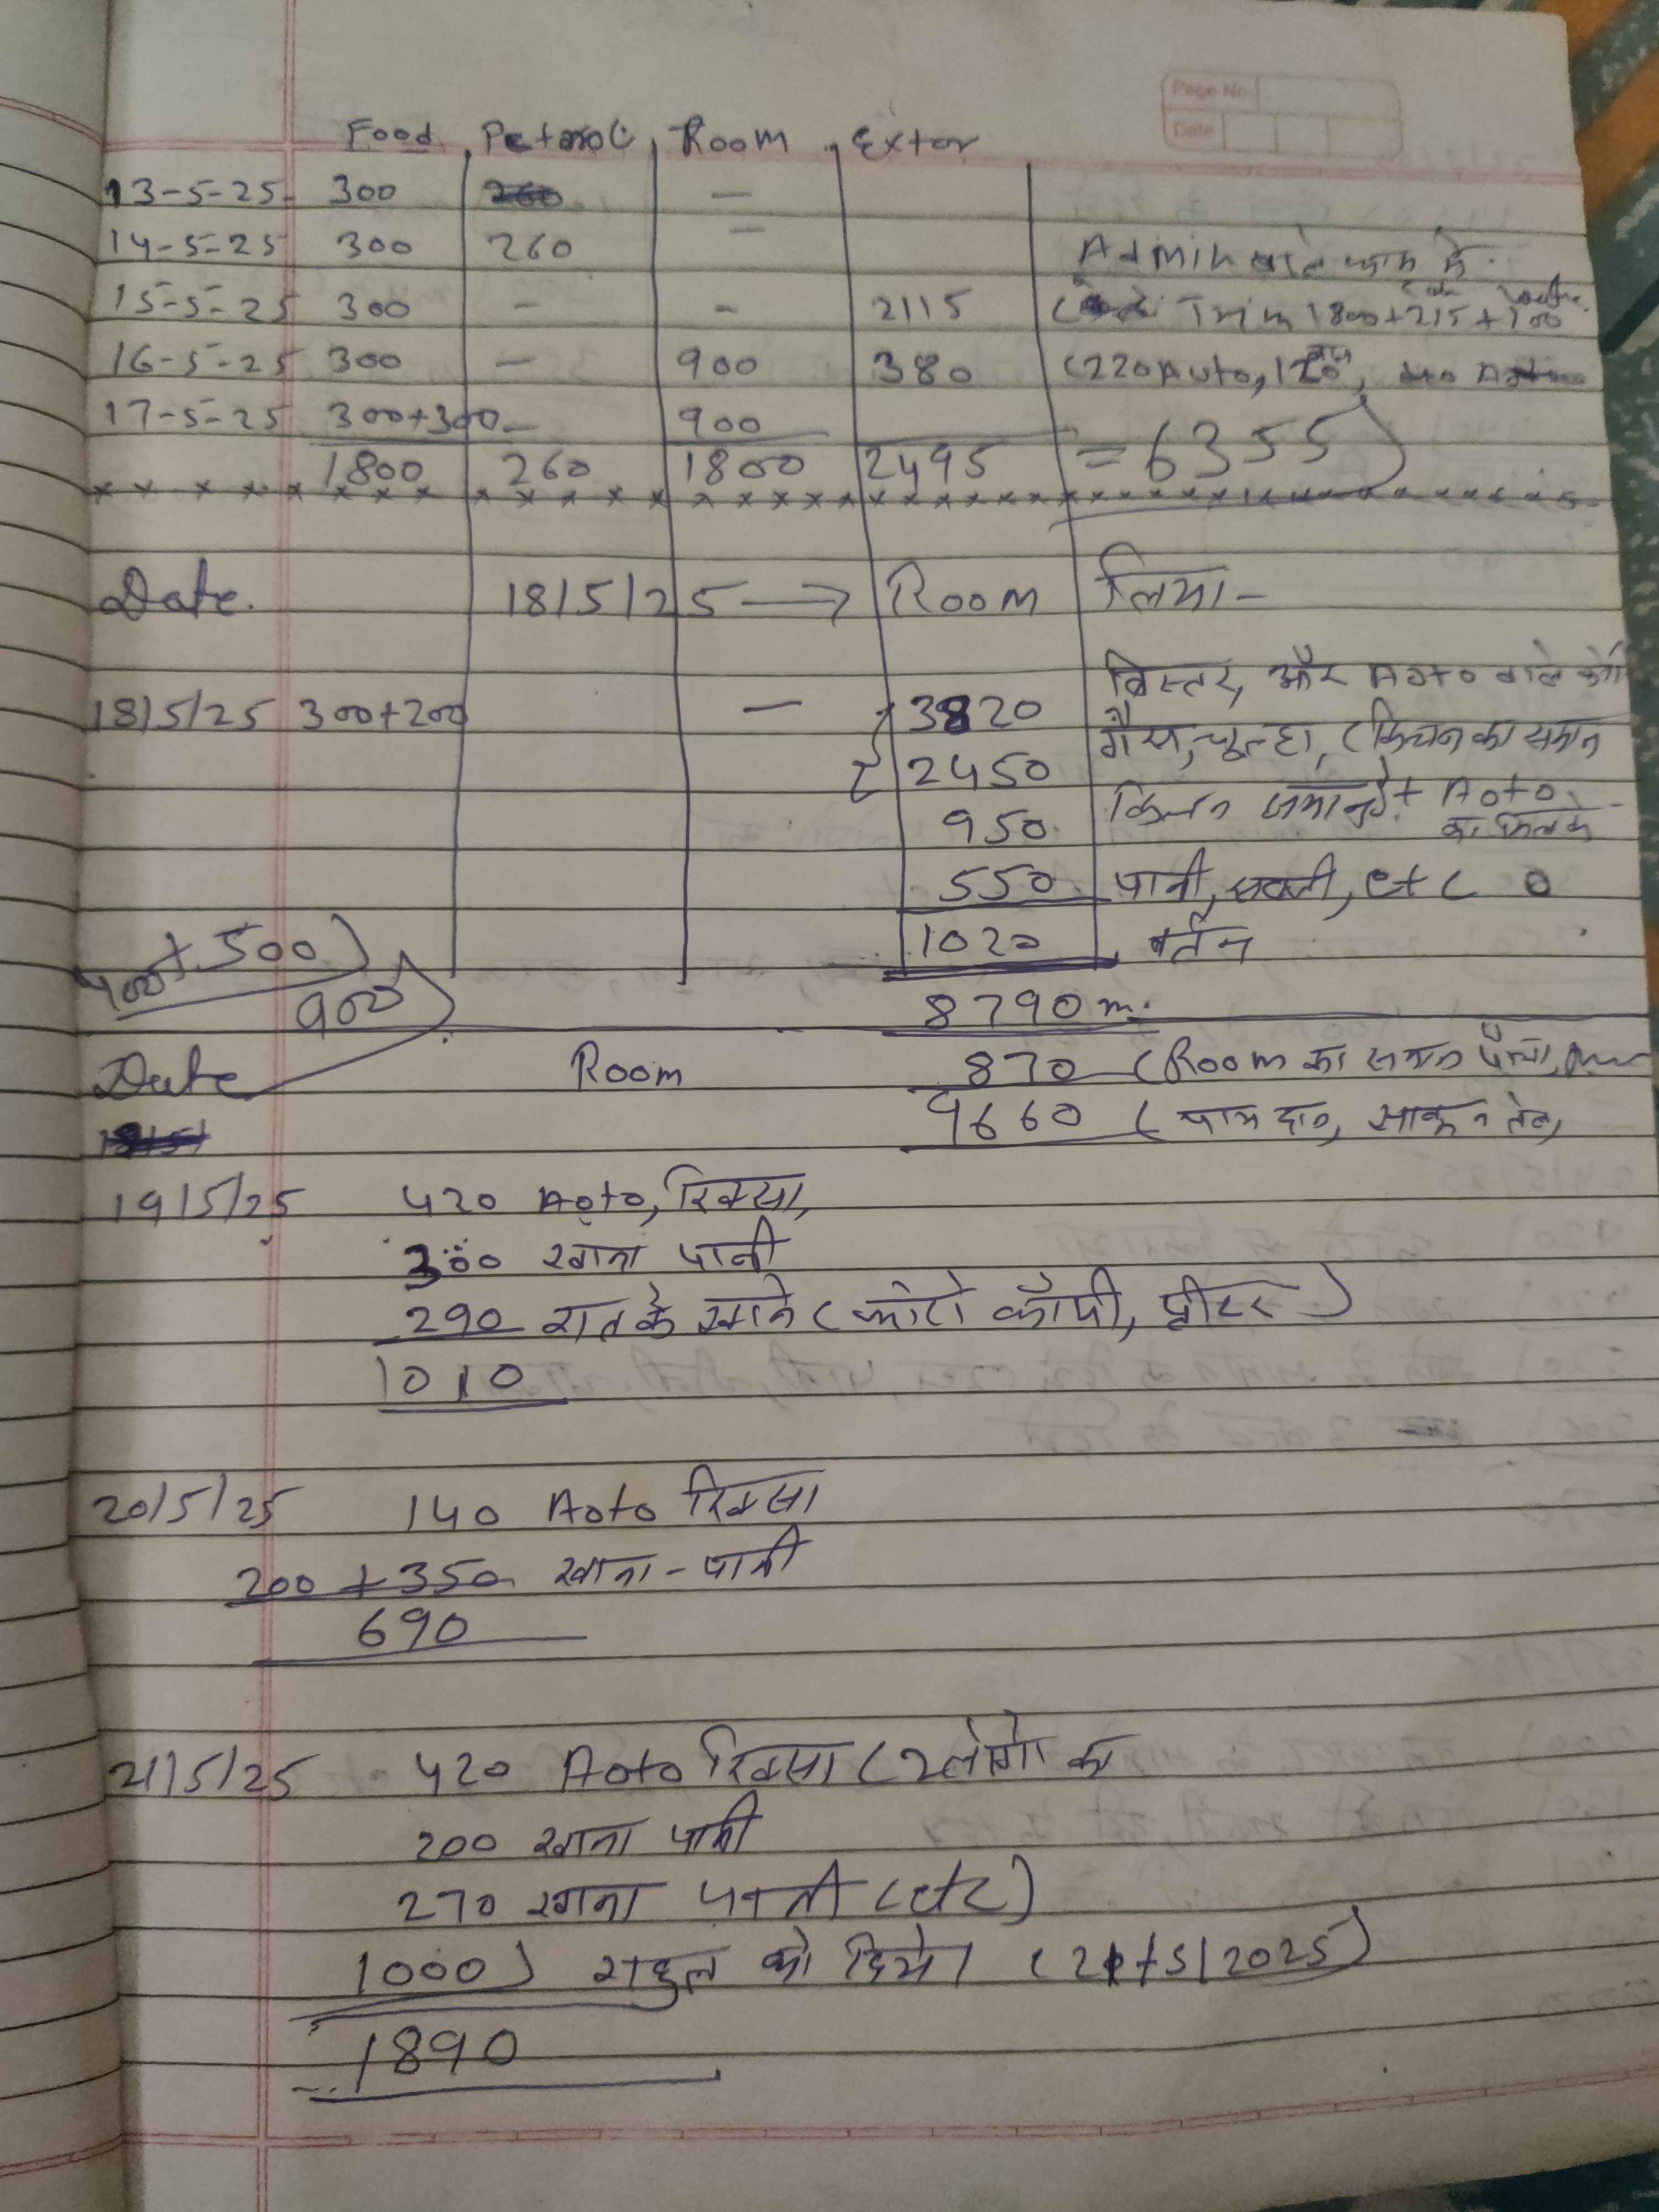 Page No.
Date
Food Petrol Room Extar
13-5-25- 300 260 —
14-5-25 300 260 —
Admin वाले काम में
15-5-25 300 - - 2115 ( Trim 1800+215+100
16-5-25 300 — 900 380 (220 Auto, 120,
17-5-25 300+300 - 900
1800 260 1800 2495 = 6355)
Date. 18/5/25 → Room लिया-
18/5/25 300+200 — 3820 बिस्तर, और Aoto वाले को
2450 गैस, चूल्हा, (किचन का समान
950 किचन + Aoto
550 पानी, सब्जी, etc
1020 बर्तन
400+500)
900)
8790
Date Room 870 (Room का समान
9660 (
19/5/25 420 Aoto, रिक्सा,
300 खाना पानी
290 रात के खाने (फोटो कॉपी,
1010
20/5/25 140 Aoto रिक्सा
200 + 350 खाना-पानी
690
21/5/25 420 Aoto रिक्सा (2 लोगो का
200 खाना पानी
270 खाना पानी (etc)
1000) राहुल को दिये। (21/5/2025)
1890